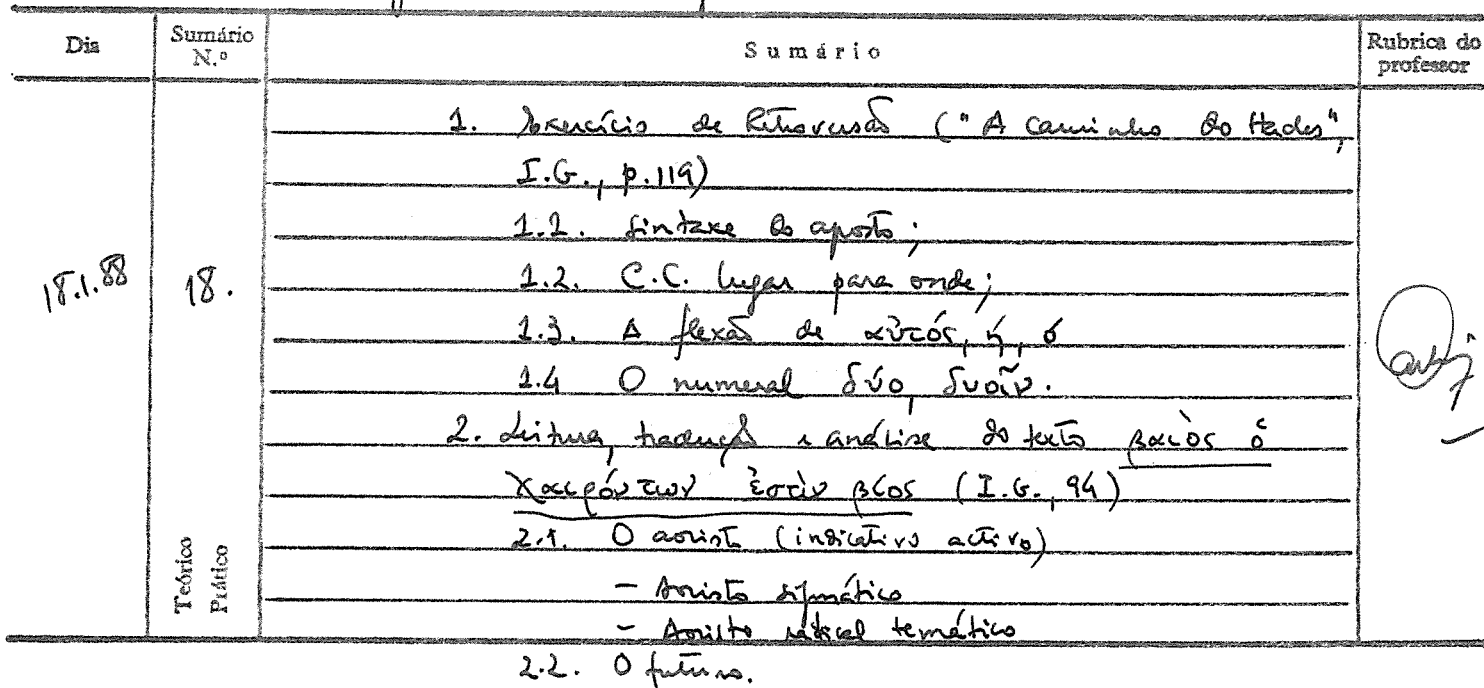 Dia
Sumário N.º
Sumário
Rubrica do professor
18.1.88
18.
1. Exercício de Retroversão ("A Caminho do Hades",
I.G., p.119)
1.1. Sintaxe do aposto;
1.2. C.C. lugar para onde;
1.3. A flexão de αὐτός, ή, ό
1.4 O numeral δύο, δυοῖν.
2. Leitura, tradução e análise do texto βαιὸς ὁ
χαιρόντων ἐστὶν βίος (I.G., 94)
2.1. O aoristo (indicativo activo)
- Aoristo sigmático
- Aoristo radical temático
2.2. O futuro.
Teórico
Prático